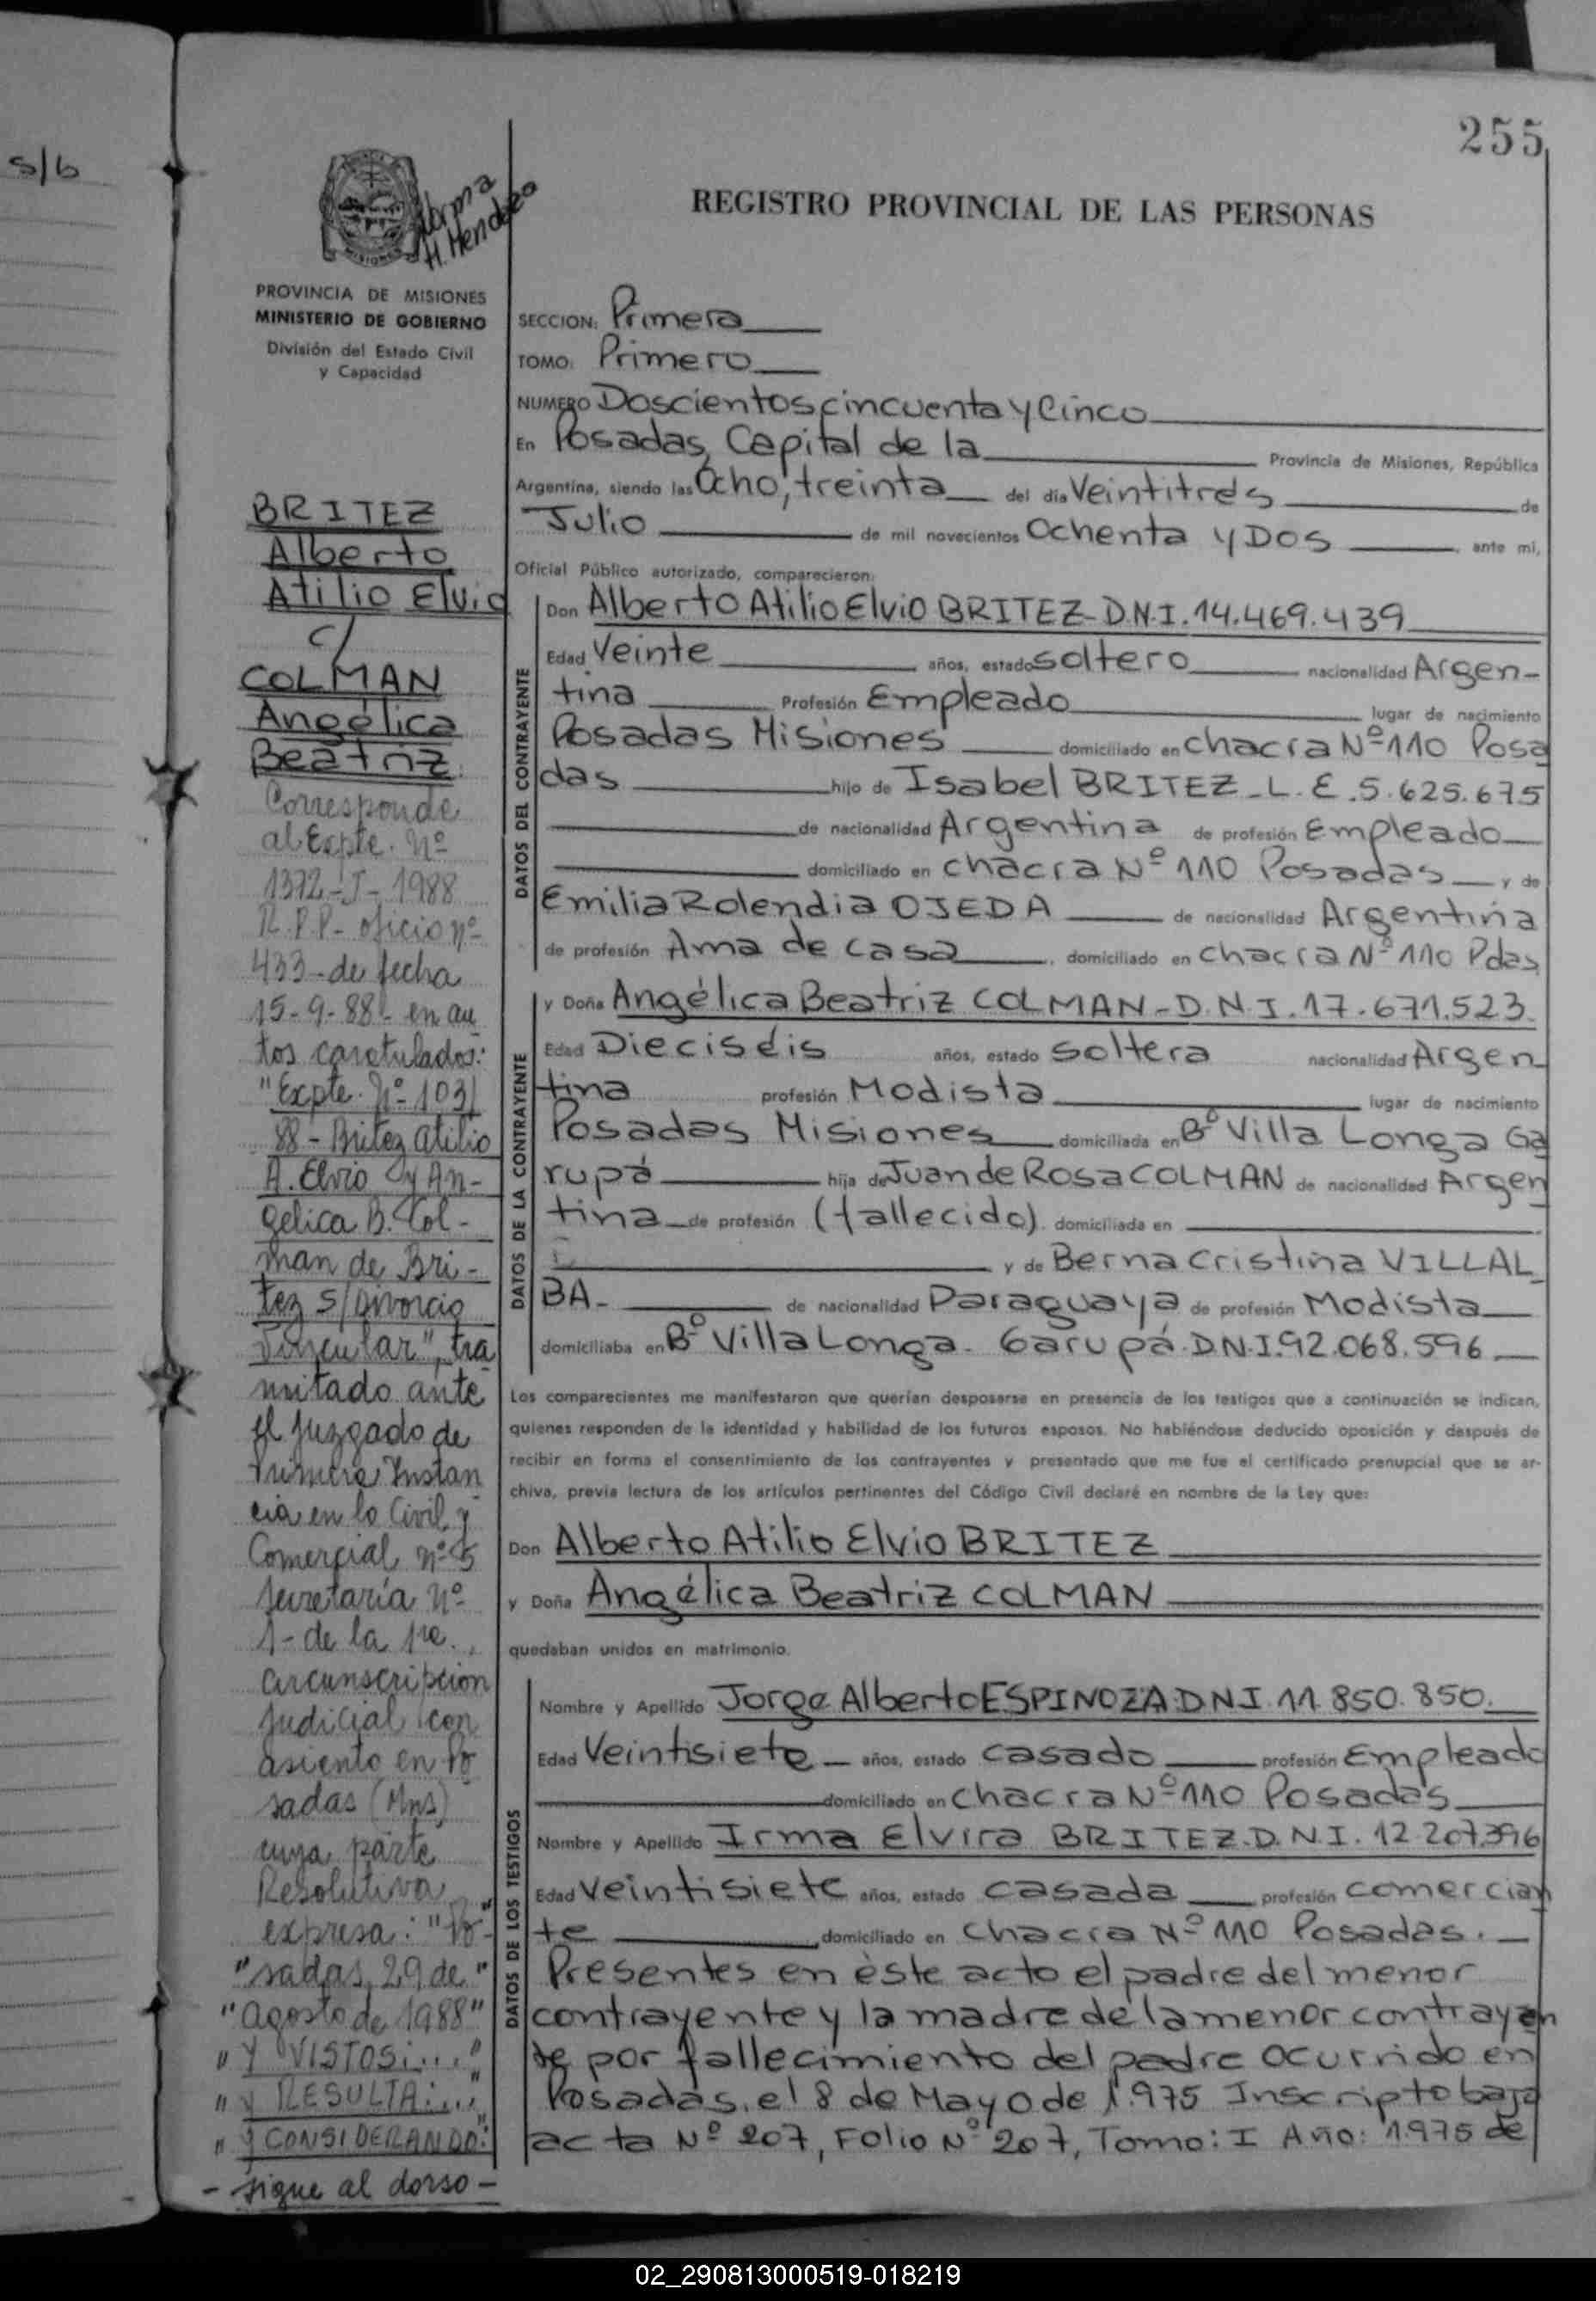 s/b
255
Norma
H. Mendoza
REGISTRO PROVINCIAL DE LAS PERSONAS
MISIONES
PROVINCIA DE MISIONES
MINISTERIO DE GOBIERNO
División del Estado Civil
y Capacidad
BRITEZ
Alberto
Atilio Elvio
c/
COLMAN
Angélica
Beatriz.
Corresponde
al Expte. Nº
1372-J-1988
R.P.P- oficio nº
433-de fecha
15-9-88- en au
tos caratulados:
"Expte. Nº 103/
88- Britez Atilio
A. Elvio y An-
gelica B. Col-
man de Bri-
tez s/Divorcio
Vincular", tra
mitado ante
el Juzgado de
Primera Instan
cia en lo Civil y
Comercial nº 5
Secretaría Nº
1- de la 1ra.,
circunscripcion
Judicial con
asiento en Po
sadas (Mns)
cuya parte
Resolutiva
expresa: "Po-"
"sadas, 29 de"
"agosto de 1988"
"Y VISTOS:...."
"Y RESULTA:...."
"Y CONSIDERANDO:"
- sigue al dorso -
SECCION: Primera
TOMO: Primero
NUMERO Doscientos cincuenta y Cinco
En Posadas, Capital de la Provincia de Misiones, República
Argentina, siendo las Ocho, treinta del día Veintitrés de
Julio de mil novecientos Ochenta y DOS, ante mi,
Oficial Público autorizado, comparecieron:
DATOS DEL CONTRAYENTE
Don Alberto Atilio Elvio BRITEZ-D.N.I.14.469.439
Edad Veinte años, estado soltero nacionalidad Argen-
tina Profesión Empleado lugar de nacimiento
Posadas Misiones domiciliado en chacra Nº 110 Posa
das hijo de Isabel BRITEZ-L.E.5.625.675
de nacionalidad Argentina de profesión Empleado
domiciliado en chacra Nº 110 Posadas y de
Emilia Rolendia OJEDA de nacionalidad Argentina
de profesión Ama de casa, domiciliado en chacra Nº 110 Pdas,
DATOS DE LA CONTRAYENTE
y Doña Angélica Beatriz COLMAN-D.N.I.17.671.523.
Edad Dieciséis años, estado soltera nacionalidad Argen
tina profesión Modista lugar de nacimiento
Posadas Misiones domiciliada en Bº Villa Longa Ga
rupá hija de Juan de Rosa COLMAN de nacionalidad Argen
tina de profesión (fallecido). domiciliada en
y de Berna Cristina VILLAL
BA- de nacionalidad Paraguaya de profesión Modista
domiciliaba en Bº Villa Longa. Garupá.D.N.I.92.068.596
Los comparecientes me manifestaron que querían desposarse en presencia de los testigos que a continuación se indican,
quienes responden de la identidad y habilidad de los futuros esposos. No habiéndose deducido oposición y después de
recibir en forma el consentimiento de los contrayentes y presentado que me fue el certificado prenupcial que se ar-
chiva, previa lectura de los artículos pertinentes del Código Civil declaré en nombre de la Ley que:
Don Alberto Atilio Elvio BRITEZ
y Doña Angélica Beatriz COLMAN
quedaban unidos en matrimonio.
DATOS DE LOS TESTIGOS
Nombre y Apellido Jorge Alberto ESPINOZA DNI.11.850.850.
Edad Veintisiete años, estado casado profesión Empleado
domiciliado en chacra Nº 110 Posadas
Nombre y Apellido Irma Elvira BRITEZ.D.N.I.12.207.396
Edad Veintisiete años, estado casada profesión comercian
te, domiciliado en chacra Nº 110 Posadas.
Presentes en èste acto el padre del menor
contrayente y la madre de la menor contrayen
te por fallecimiento del padre ocurrido en
Posadas, el 8 de Mayo de 1.975 Inscripto bajo
acta Nº 207, Folio Nº 207, Tomo: I Año: 1.975 de
02_290813000519-018219